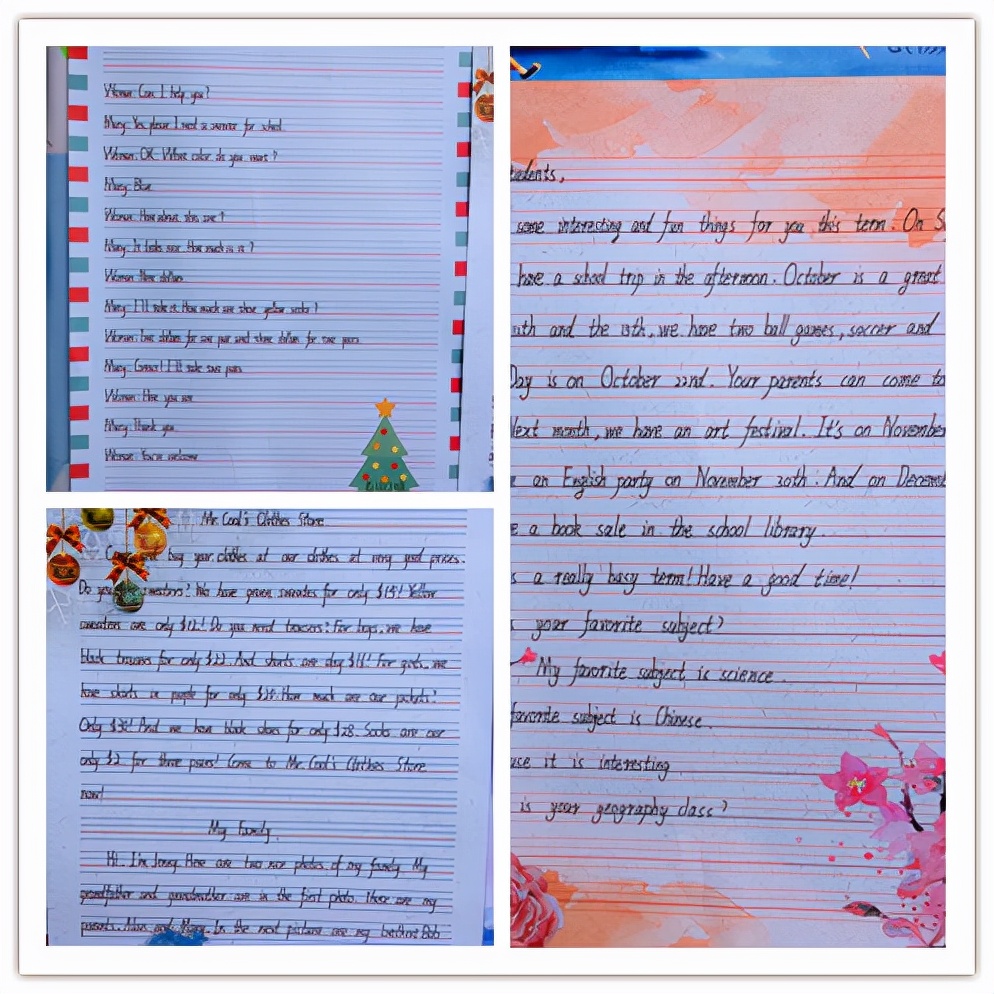 Woman: Can I help you?
Mary: Yes, please. I need a sweater for school.
Woman: OK. What color do you want?
Mary: Blue.
Woman: How about this one?
Mary: It looks nice. How much is it?
Woman: Nine dollars.
Mary: I'll take it. How much are those yellow socks?
Woman: Two dollars for one pair and three dollars for two pairs.
Mary: Great! I'll take two pairs.
Woman: Here you are.
Mary: Thank you.
Woman: You're welcome.
Mr. Cool's Clothes Store
buy your clothes at our clothes at very good prices.
Do you sweaters? We have green sweaters for only $15! Yellow
sweaters are only $12! Do you need trousers? For boys, we have
black trousers for only $22. And shorts are only $16! For girls, we
have skirts in purple for only How much are our jackets?
Only And we have black shoes for only $28. Socks are our
only $2 for three pairs! Come to Mr. Cool's Clothes Store
now!
My Family
Hi, I'm Jenny. Here are two nice photos of my family. My
grandfather and grandmother are in the first photo. These are my
parents, and In the next picture are my brothers Bob
udents,
some interesting and fun things for you this term. On S
have a school trip in the afternoon. October is a great
and the 15th, we have two ball games, soccer and
Day is on October 22nd. Your parents can come to
Next month, we have an art festival. It's on November
an English party on November 30th. And on Decemb
e a book sale in the school library.
s a really busy term! Have a good time!
your favorite subject?
My favorite subject is science.
favorite subject is Chinese.
use it is interesting
is your geography class?